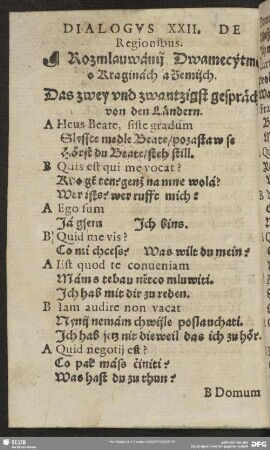 DIALOGVS XXII. DE
Regionibus.
Rozmlauwánij Dwamecýtmé
o Kraginách a Zemijch.
Das zwey vnd zwantzigst gespräch
von den Ländern.
A Heus Beate, siste gradum
Slyssce medle Beate/pozastaw se
Hörst du Beate/steh still.
B Quis est qui me vocat?
Kdo gest ten/genž na mne wolá?
Wer ists? wer rufft mich?
A Ego sum
Já gsem Ich bins.
B Quid me vis?
Co mi chcess? Was wilt du mein?
A Est quod te conueniam
Mám s tebau něrco mluwiti.
Ich hab mit dir zu reden.
B Iam audire non vacat
Nynij nemám chwijle poslauchati.
Ich hab jetz nit dieweil das ich zu hör.
A Quid negotij est?
Co pak máss činiti?
Was hast du zu thun?
B Domum
SLUB
DFG